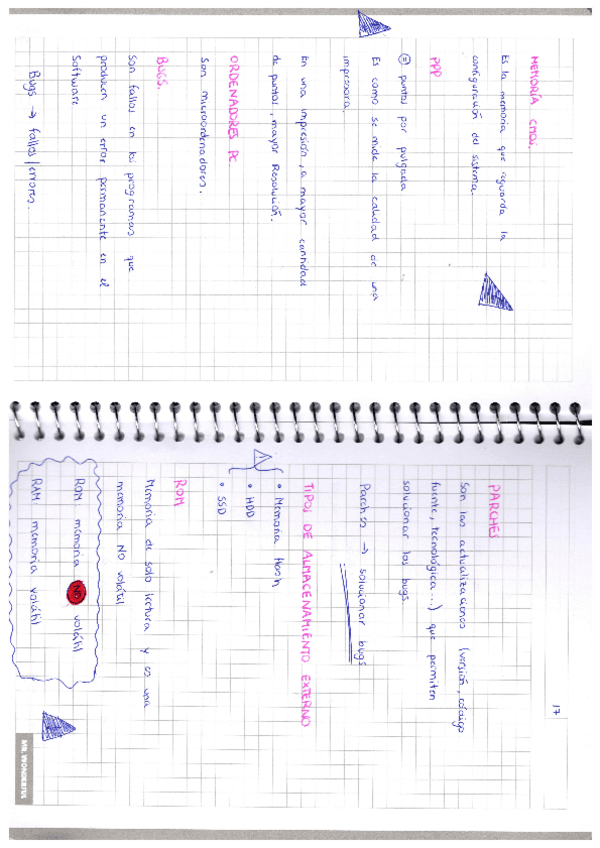 MEMORÍA CMOS.
Es la memoria que aguarda la
configuración del sistema.
PPP
puntos por pulgada
Es como se mide la calidad de una
impresora.
En una impresión, a mayor cantidad
de puntos, mayor Resolución.
ORDENADORES PC
Son microordenadores.
BUGS.
Son fallos en los programas que
producen un error permanente en el
Software
Bugs → fallos/errores.
17
PARCHES
Son las actualizaciones (versión, código
fuente, tecnológica...) que permiten
solucionar los bugs.
Parches → solucionar bugs
TIPOS DE ALMACENAMIENTO EXTERNO
• Memoria flash
• HDD
• SSD
ROM
Memoria de solo lectura y es una
memoria NO volátil
ROM: memoria NO volátil
RAM: memoria volátil
MR. WONDERFUL